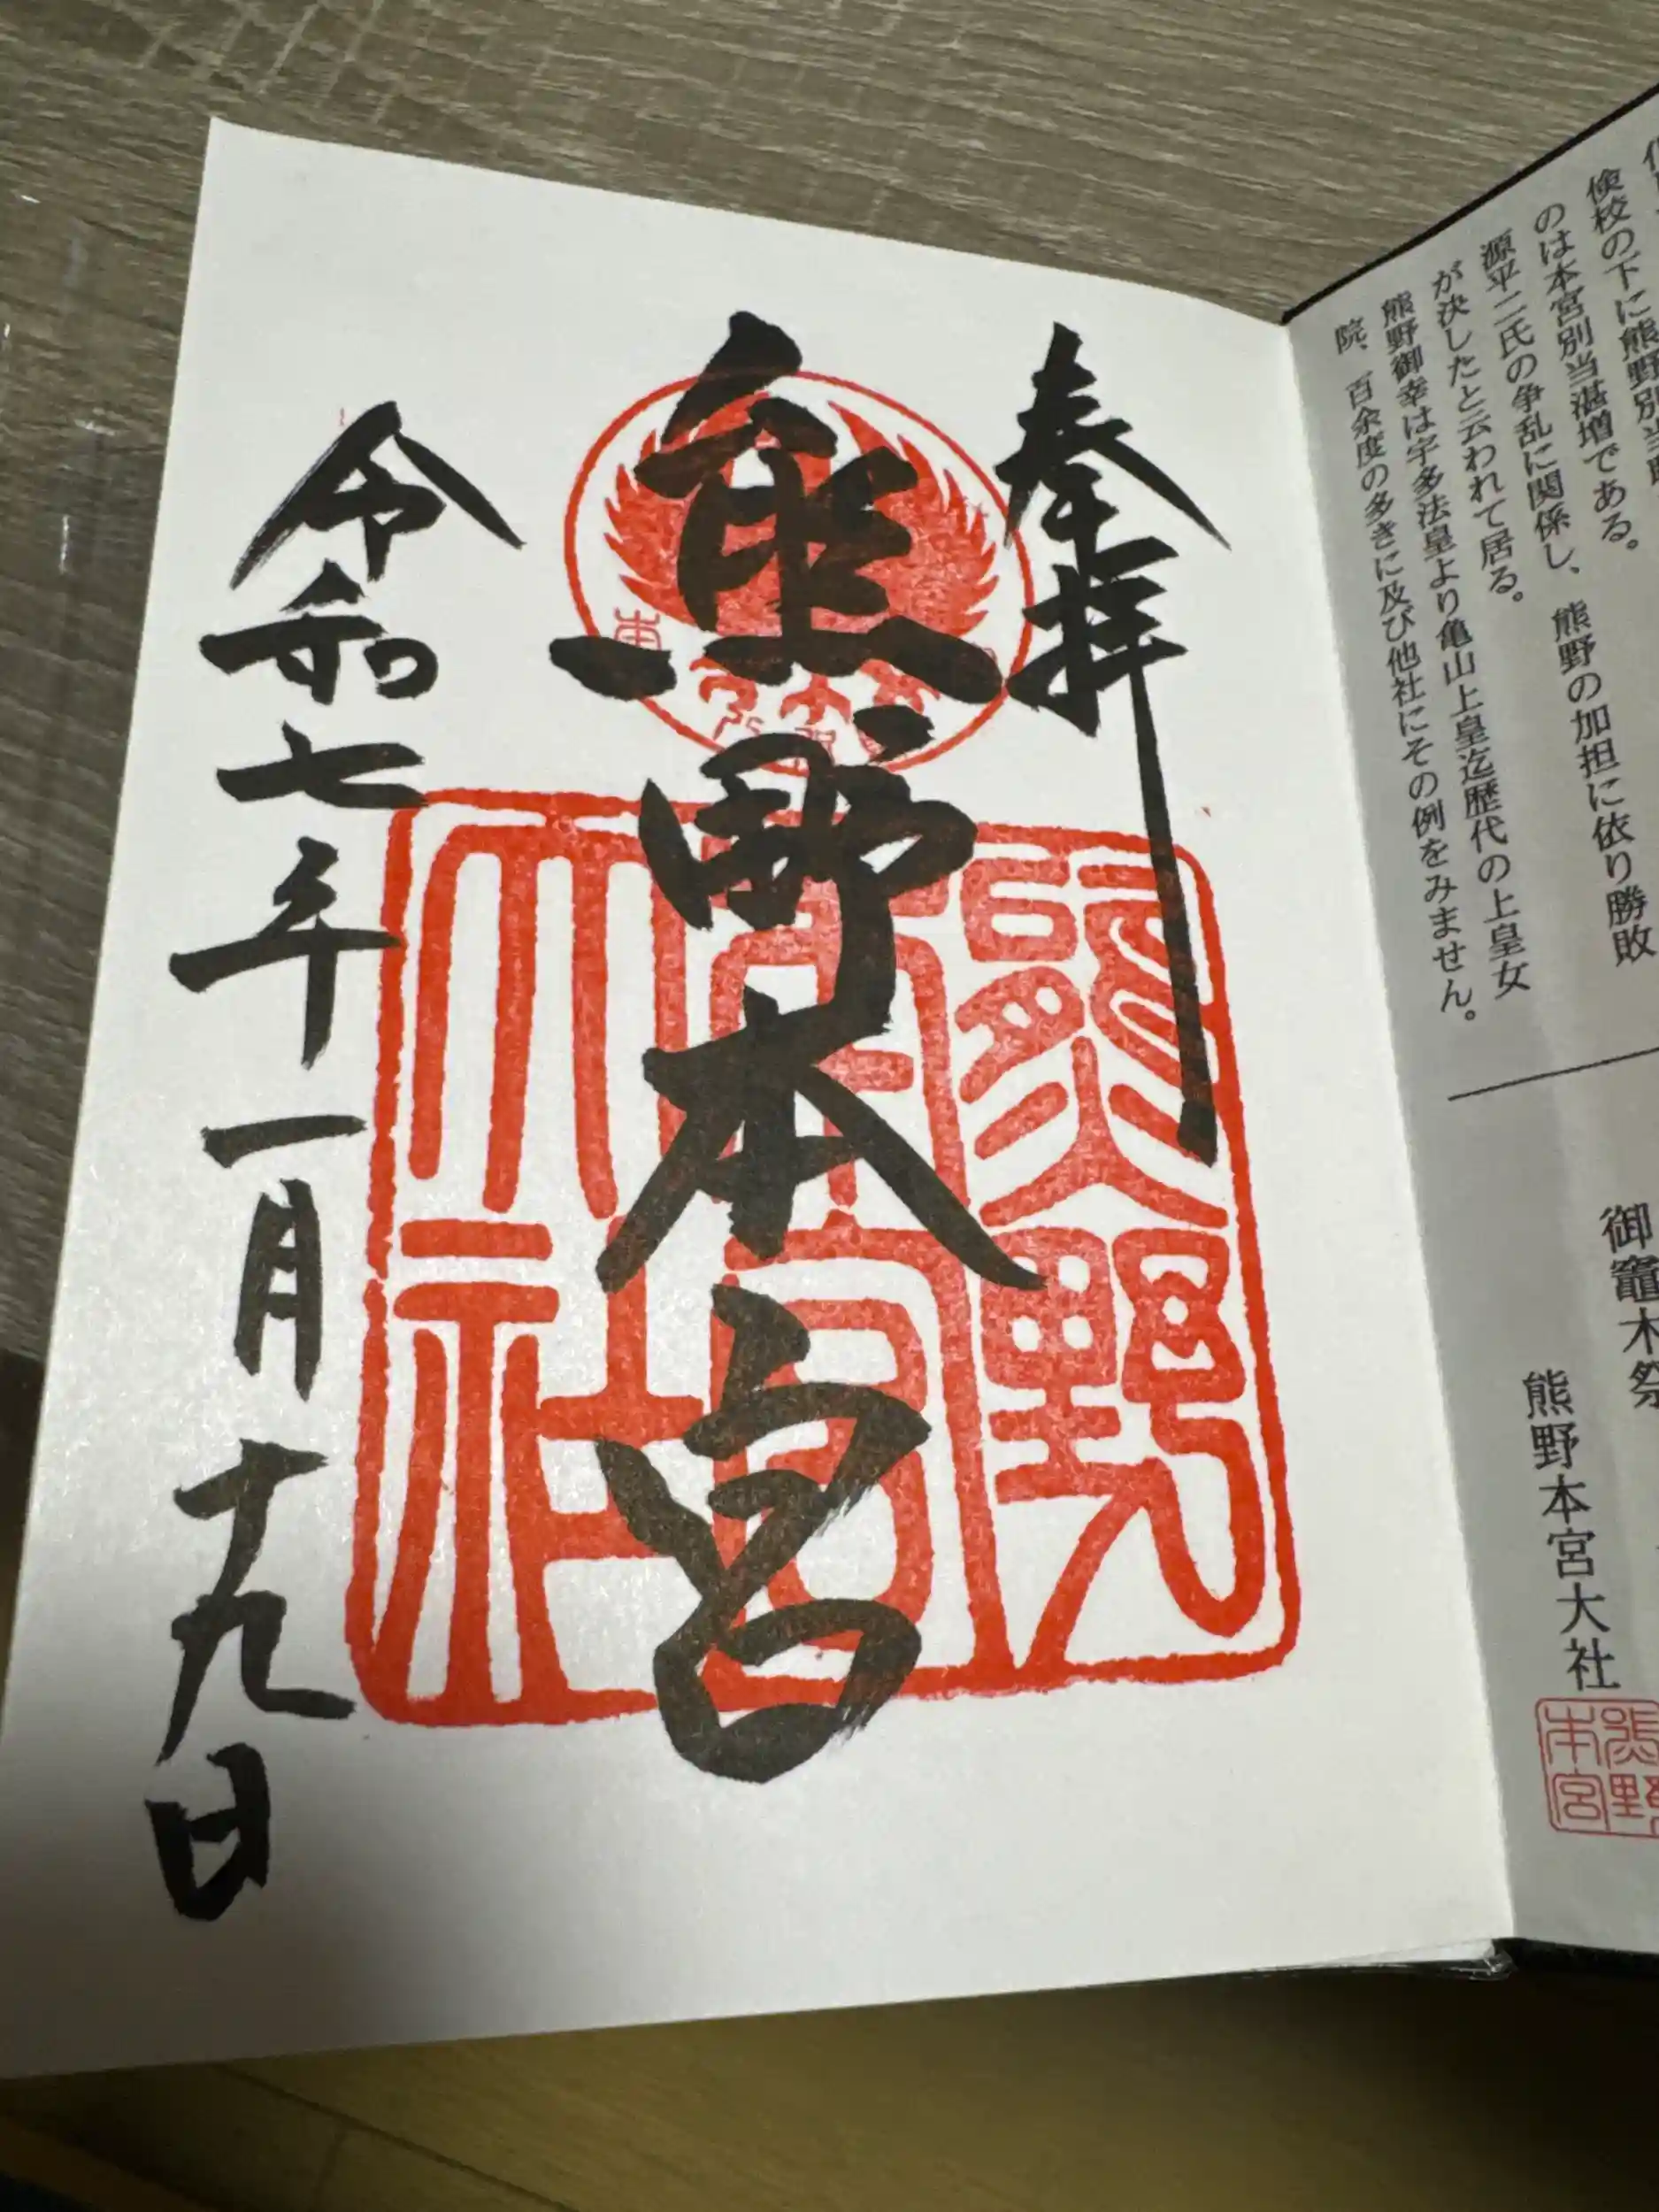 倹校の下に熊野別当職
のは本宮別当湛増である。
源平二氏の争乱に関係し、熊野の加担に依り勝敗
が決したと云われて居る。
熊野御幸は宇多法皇より亀山上皇迄歴代の上皇女
院、百余度の多きに及び他社にその例をみません。
御竈木祭
熊野本宮大社
熊野
本宮
奉拝
熊野本宮
熊野
本宮
大社
令和七年一月十九日